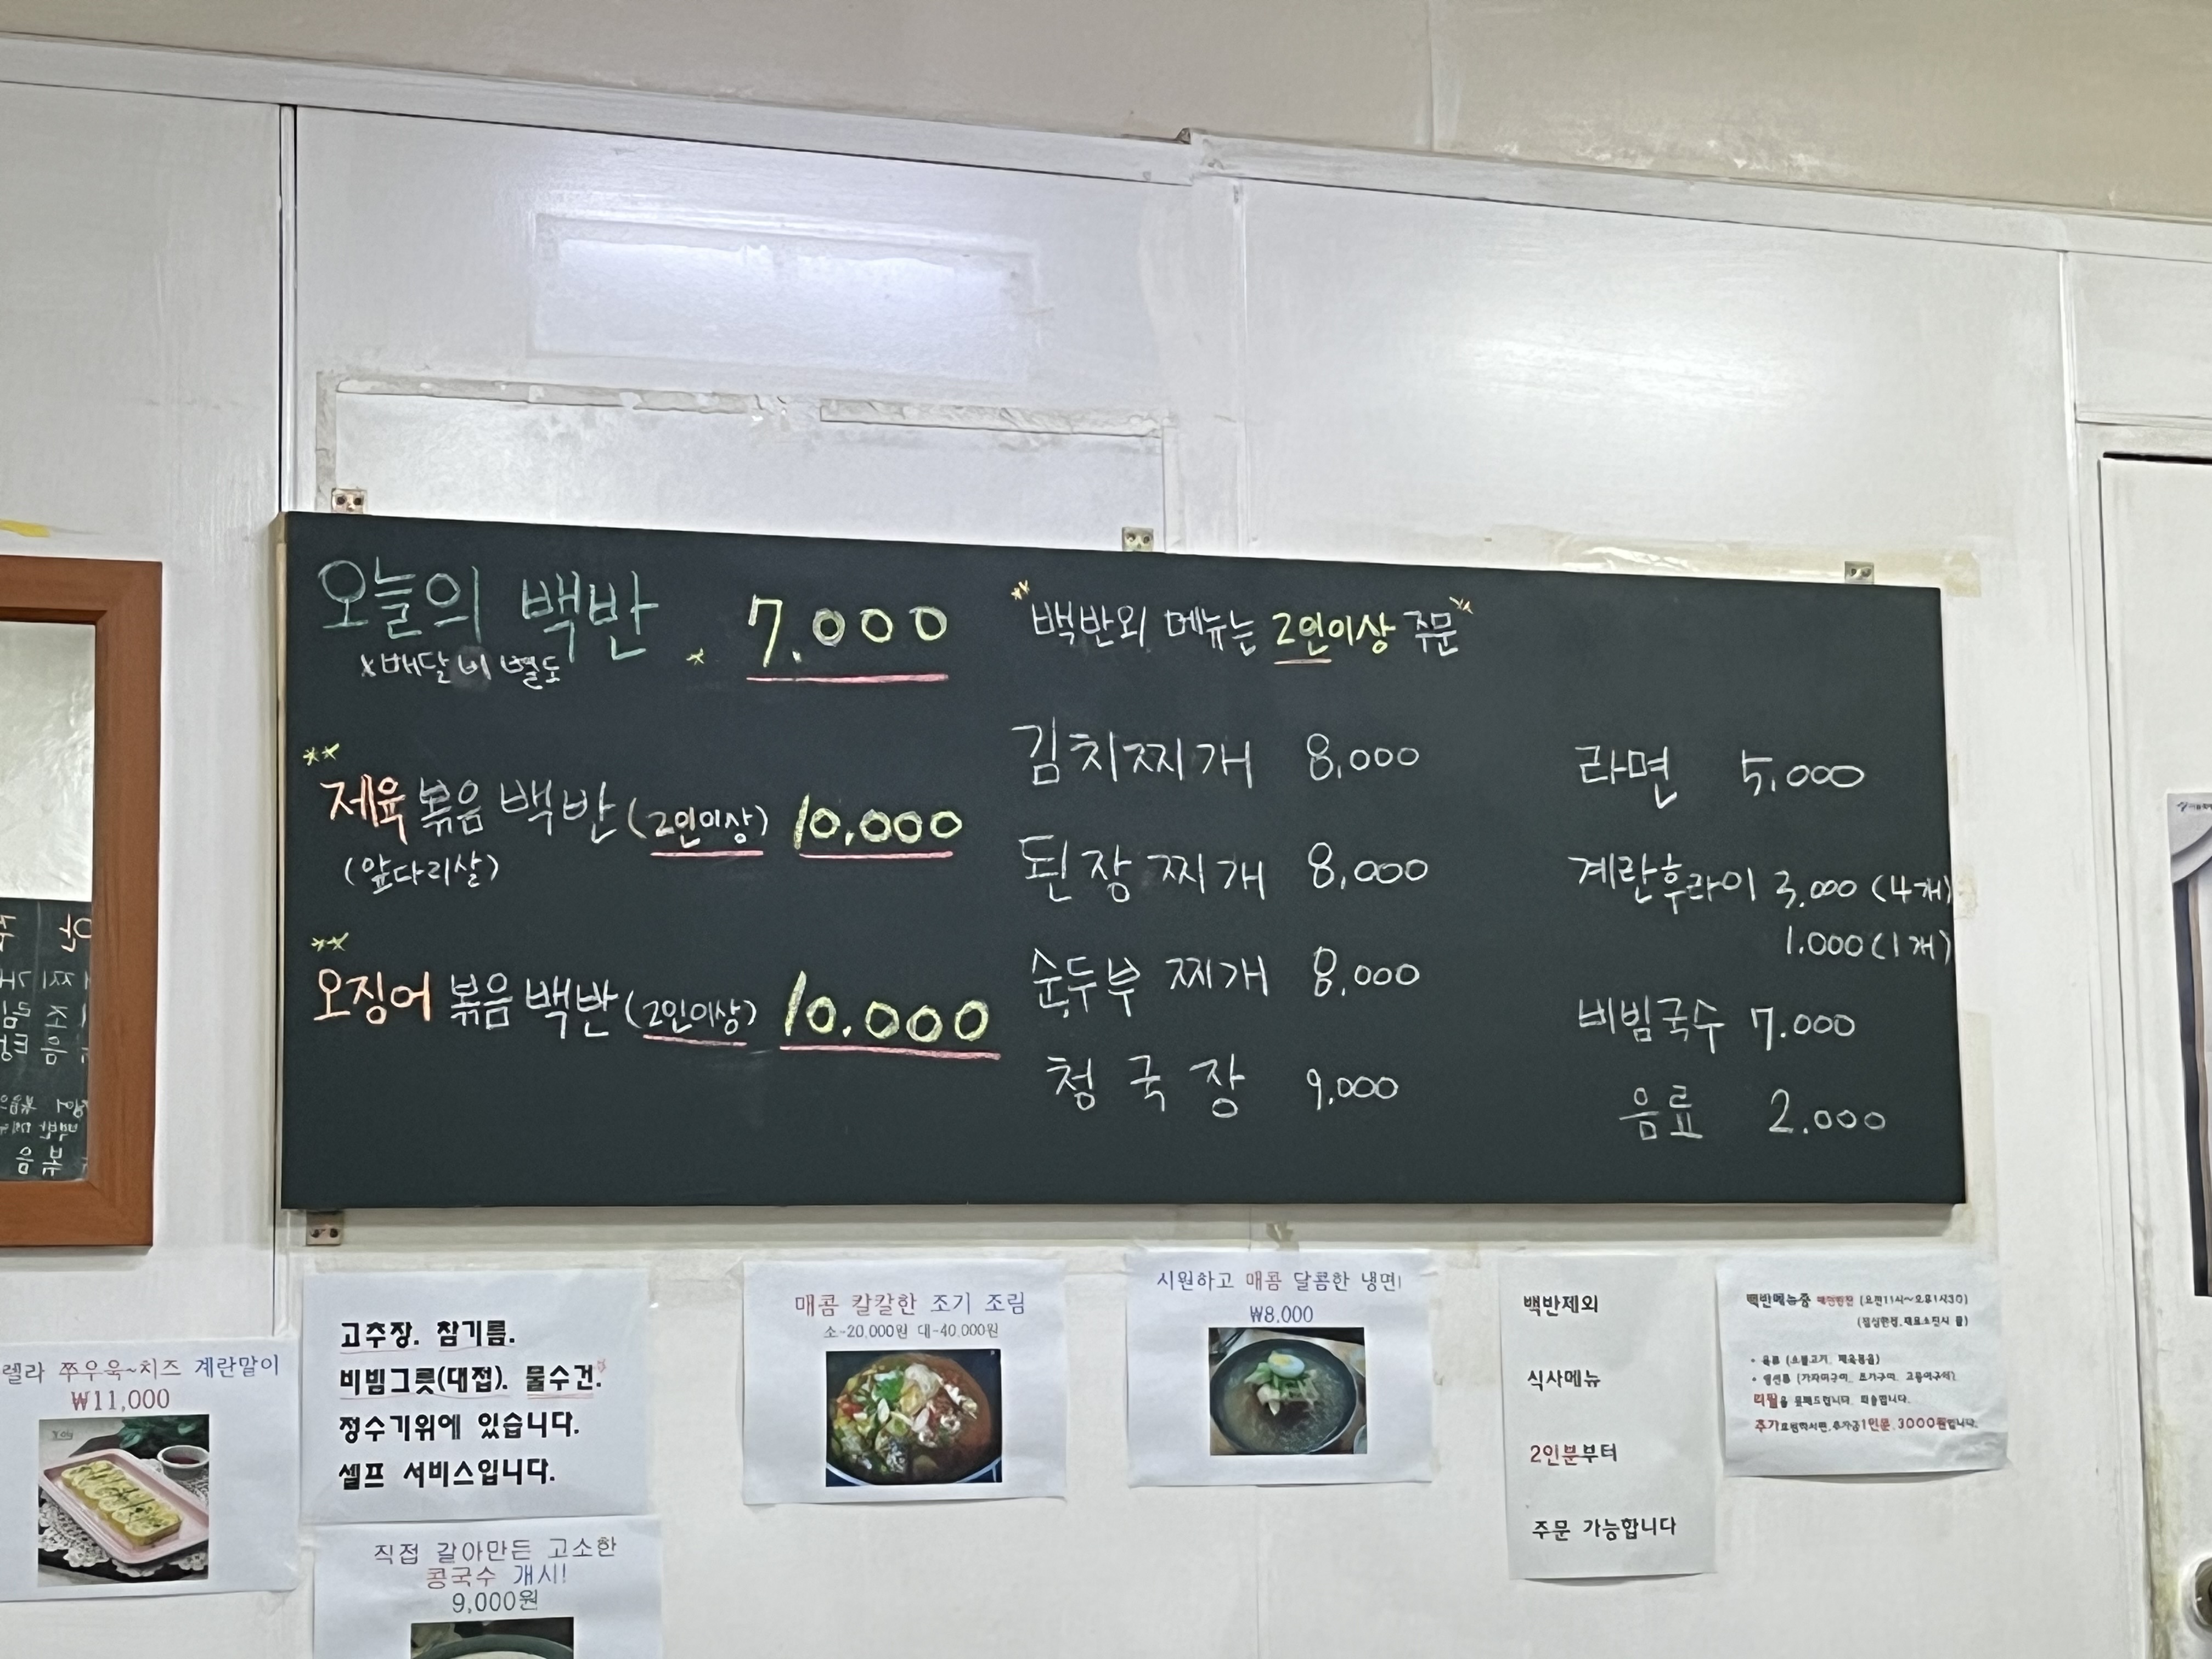 오늘의 백반 7.000
*배달비 별도
**
제육볶음백반 (2인이상) 10,000
(앞다리살)
**
오징어 볶음백반 (2인이상) 10.000
**백반외 메뉴는 2인이상 주문**
김치찌개 8,000
된장찌개 8,000
순두부찌개 8,000
청국장 9,000
라면 5,000
계란후라이 3,000 (4개)
1.000 (1개)
비빔국수 7.000
음료 2.000
렐라 쭈우욱~치즈 계란말이
₩11,000
고추장. 참기름.
비빔그릇(대접). 물수건.
정수기위에 있습니다.
셀프 서비스입니다.
직접 갈아만든 고소한
콩국수 개시!
9,000원
매콤 칼칼한 조기 조림
소-20,000원 대-40,000원
시원하고 매콤 달콤한 냉면!
₩8,000
백반제외
식사메뉴
2인분부터
주문 가능합니다
백반메뉴중 (오전11시~오후1시30)
(점심한정.재료소진시 끝)
• 육류 (소불고기, 제육볶음)
• 생선류 (가자미구이, 조기구이, 고등어구이)
리필을 못해드립니다. 죄송합니다.
추가요청하시면, 추가금1인분.3000원입니다.